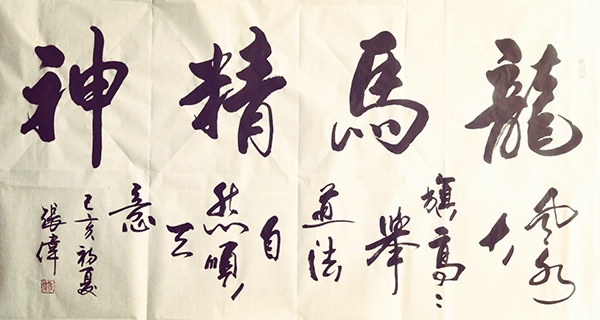 龍馬精神
風水
大
旗高〻
舉
道法
自
然順
天
意
己亥初夏
張偉